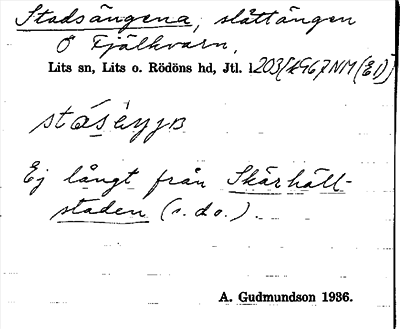 Stadsängena, slåttängen
Ö Fjälkvarn,
Lits sn, Lits o. Rödöns hd, Jtl. 1203/1967 NM (E1)
Ej långt från Skärhäll-
staden (s. d o.)
A. Gudmundson 1936.